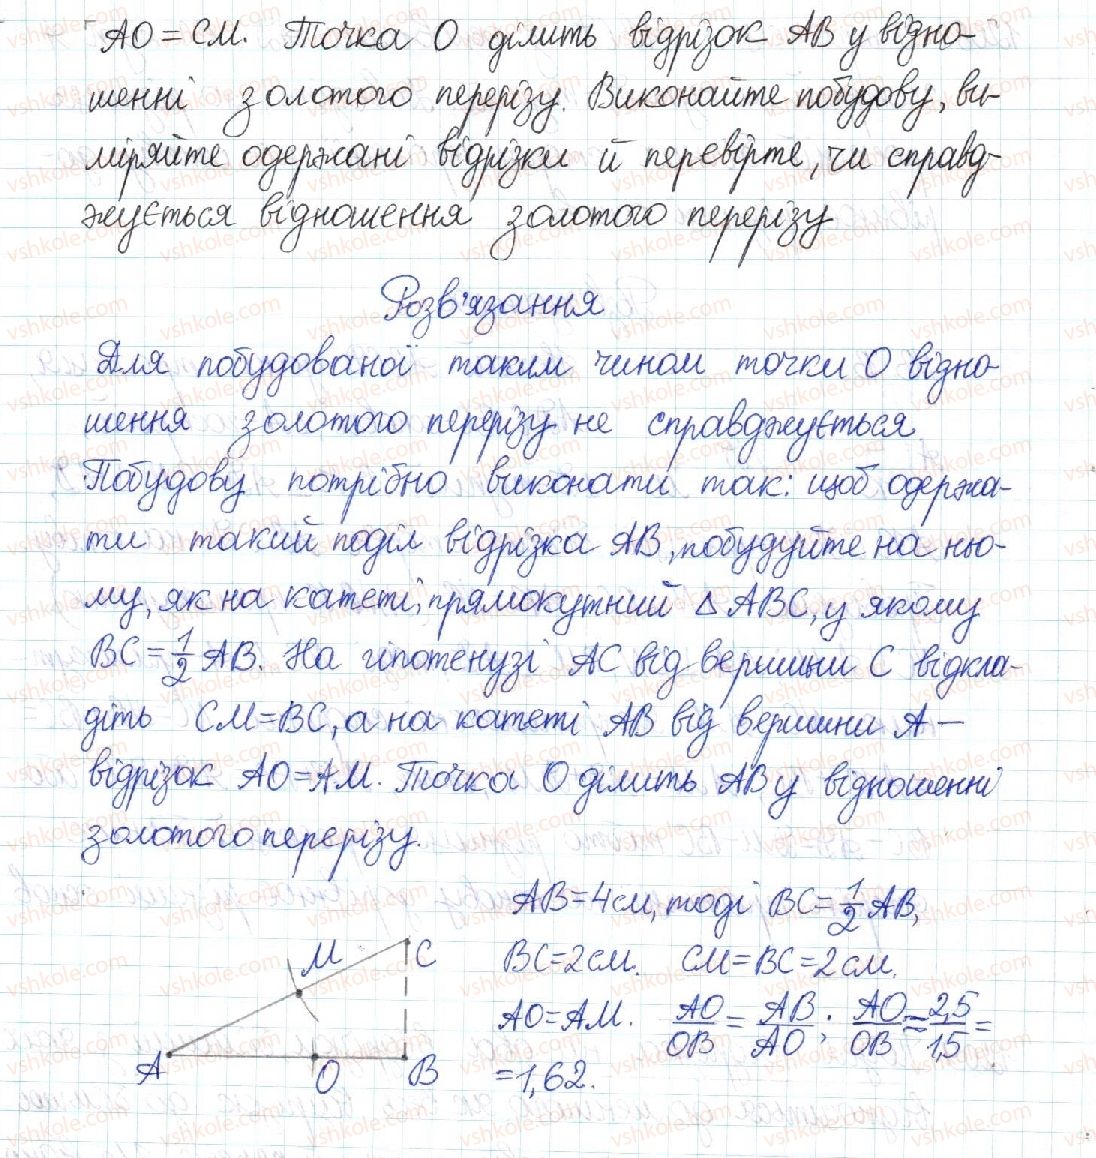 AO = CM. Точка O ділить відрізок AB у відно-
шенні золотого перерізу. Виконайте побудову, ви-
міряйте одержані відрізки й перевірте, чи справд-
жується відношення золотого перерізу
Розв'язання
Для побудованої таким чином точки O відно-
шення золотого перерізу не справджується
Побудову потрібно виконати так: щоб одержа-
ти такий поділ відрізка AB, побудуйте на ньо-
му, як на катеті, прямокутний △ABC, у якому
BC = 1/2 AB. На гіпотенузі AC від вершини C відкла-
діть CM = BC, а на катеті AB від вершини A –
відрізок AO = AM. Точка O ділить AB у відношенні
золотого перерізу.
AB = 4 см, тоді BC = 1/2 AB,
BC = 2 см. CM = BC = 2 см.
AO = AM. AO/OB = AB/AO; AO/OB ≈ 2,5/1,5 =
= 1,62.
M
C
A
O
B
vshkole.com